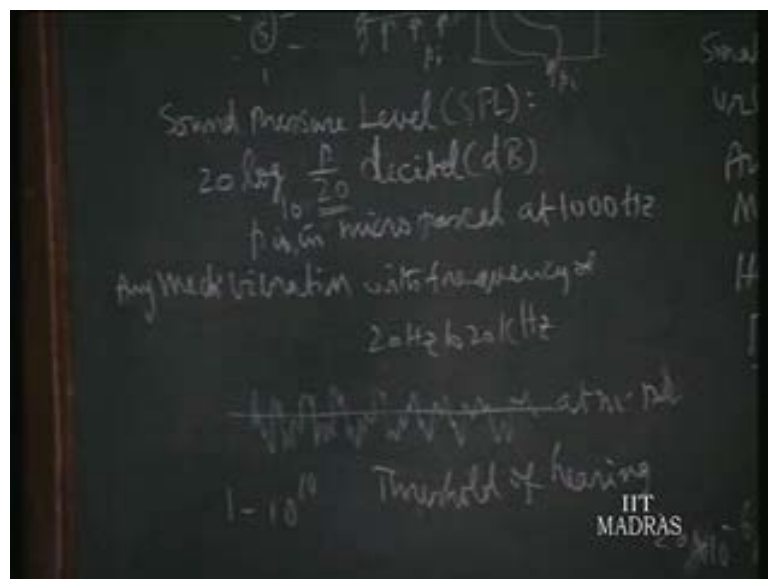 Sound Pressure Level (SPL):
20 log10 p/20 decibel (dB)
p is in micro pascal at 1000 Hz
Any Mech vibration with frequency of
20Hz to 20KHz
atm.
1 - 10^10 Threshold of hearing
IIT
MADRAS